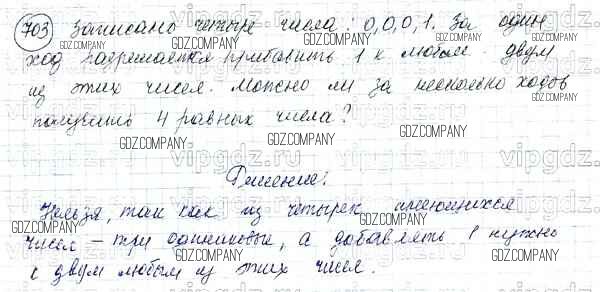 703 Записано четыре числа: 0,0,0,1. За один
ход разрешается прибавить 1 к любым двум
из этих чисел. Можно ли за несколько ходов
получить 4 равных числа?
Решение:
Нельзя, так как из четырех имеющихся
чисел – три одинаковые, а добавлять 1 нужно
к двум любым из этих чисел.
GDZ.COMPANY
vipgdz.ru